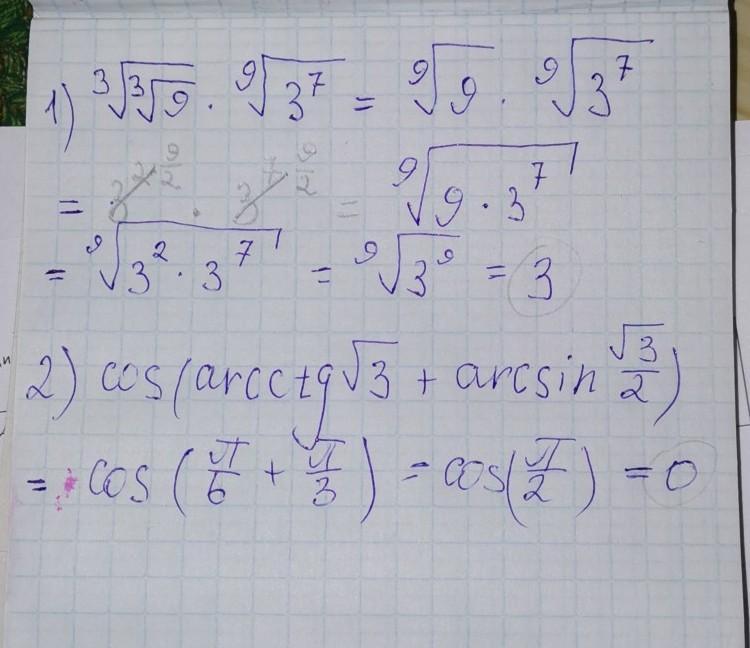 1) ∛(∛9) · ⁹√(3⁷) = ⁹√9 · ⁹√(3⁷)
= · = ⁹√(9 · 3⁷)
= ⁹√(3² · 3⁷) = ⁹√(3⁹) = 3
2) cos(arcctg√3 + arcsin √3/2)
= cos(π/6 + π/3) = cos(π/2) = 0